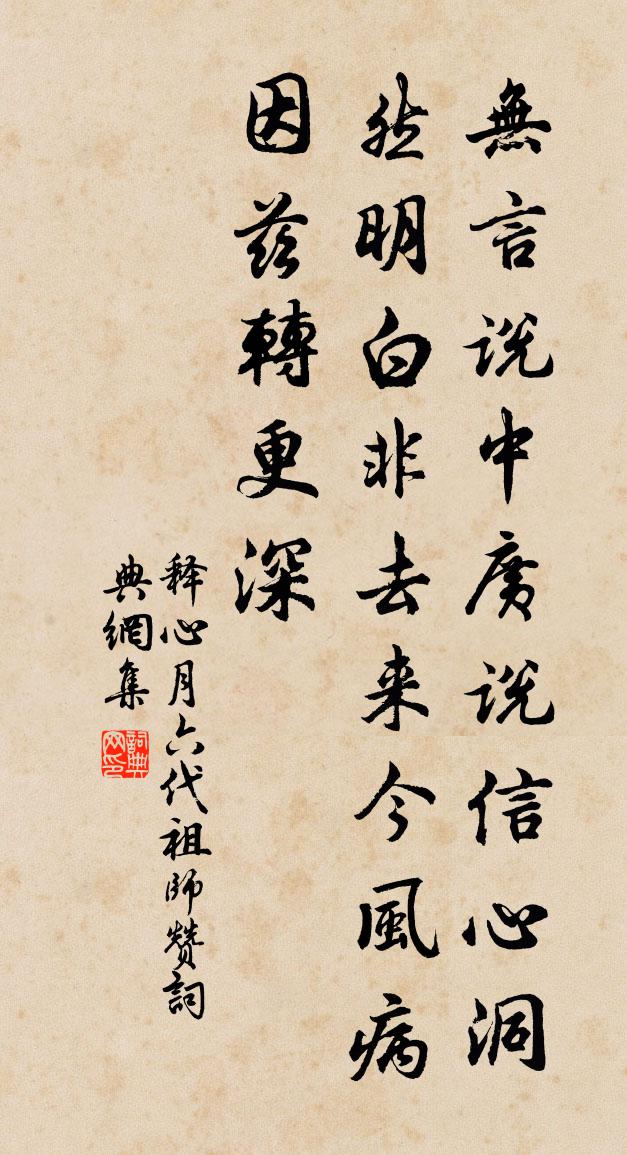 無言說中廣說信心洞
然明白非去来今風病
因茲轉更深
释心月六代祖師赞詞
典網集
詞典網印